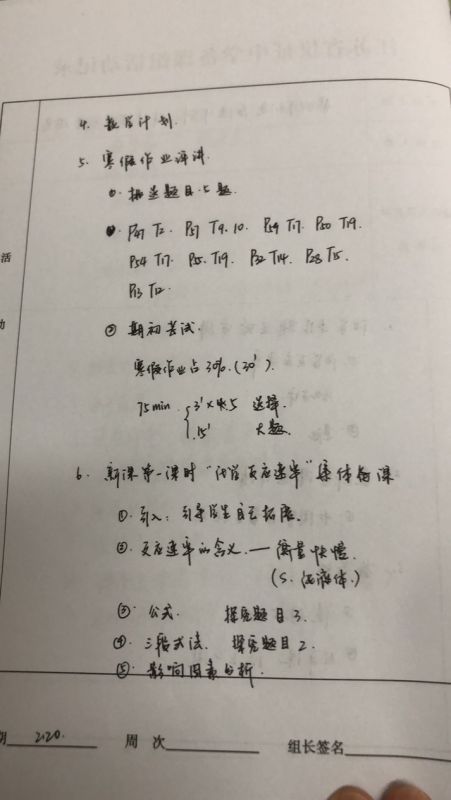 4. 教学计划.
5. 寒假作业评讲.
①. 挑选题目. 5题.
P47 T2. P57 T9. 10. P59 T17. P50 T19.
P54 T17. P55. T19. P32 T14. P28 T15.
P13 T12.
② 期初考试.
寒假作业占30%. (30').
75min. 3'× 选择.
15' 大题.
6. 新课第一课时 "化学反应速率" 集体备课
①. 引入: 引导学生自己拓展.
②. 反应速率的含义. — 衡量快慢.
(s. 纯液体.)
③. 公式. 探究题目3.
④. 三段式法. 探究题目2.
⑤. 影响因素分析.
活
动
期 2.20. 周 次 组长签名